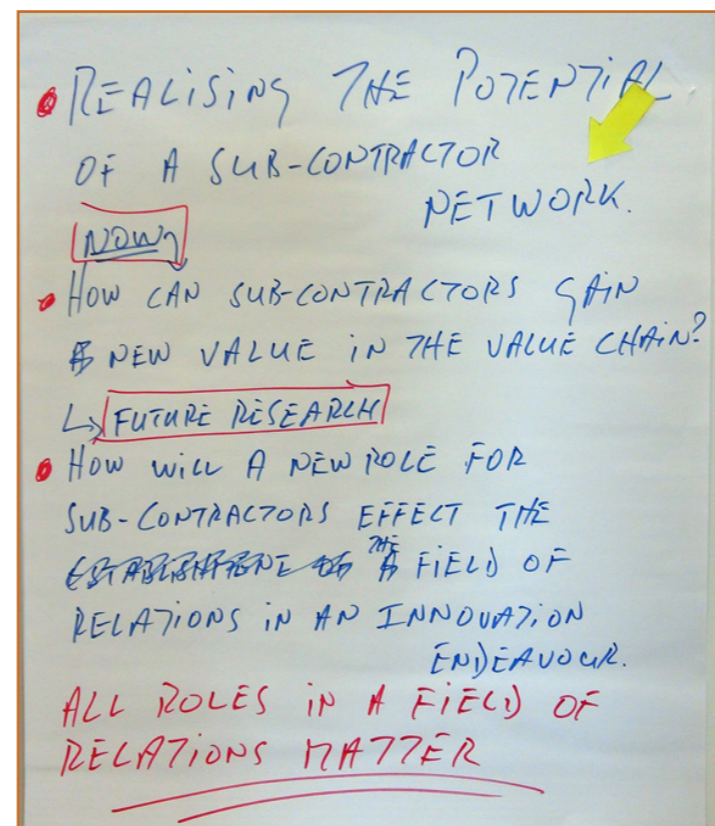 • REALISING THE POTENTIAL
OF A SUB-CONTRACTOR
NETWORK.
NOW
• HOW CAN SUB-CONTRACTORS GAIN
NEW VALUE IN THE VALUE CHAIN?
↳ FUTURE RESEARCH
• HOW WILL A NEW ROLE FOR
SUB-CONTRACTORS EFFECT THE
THE FIELD OF
RELATIONS IN AN INNOVATION
ENDEAVOUR.
ALL ROLES IN A FIELD OF
RELATIONS MATTER